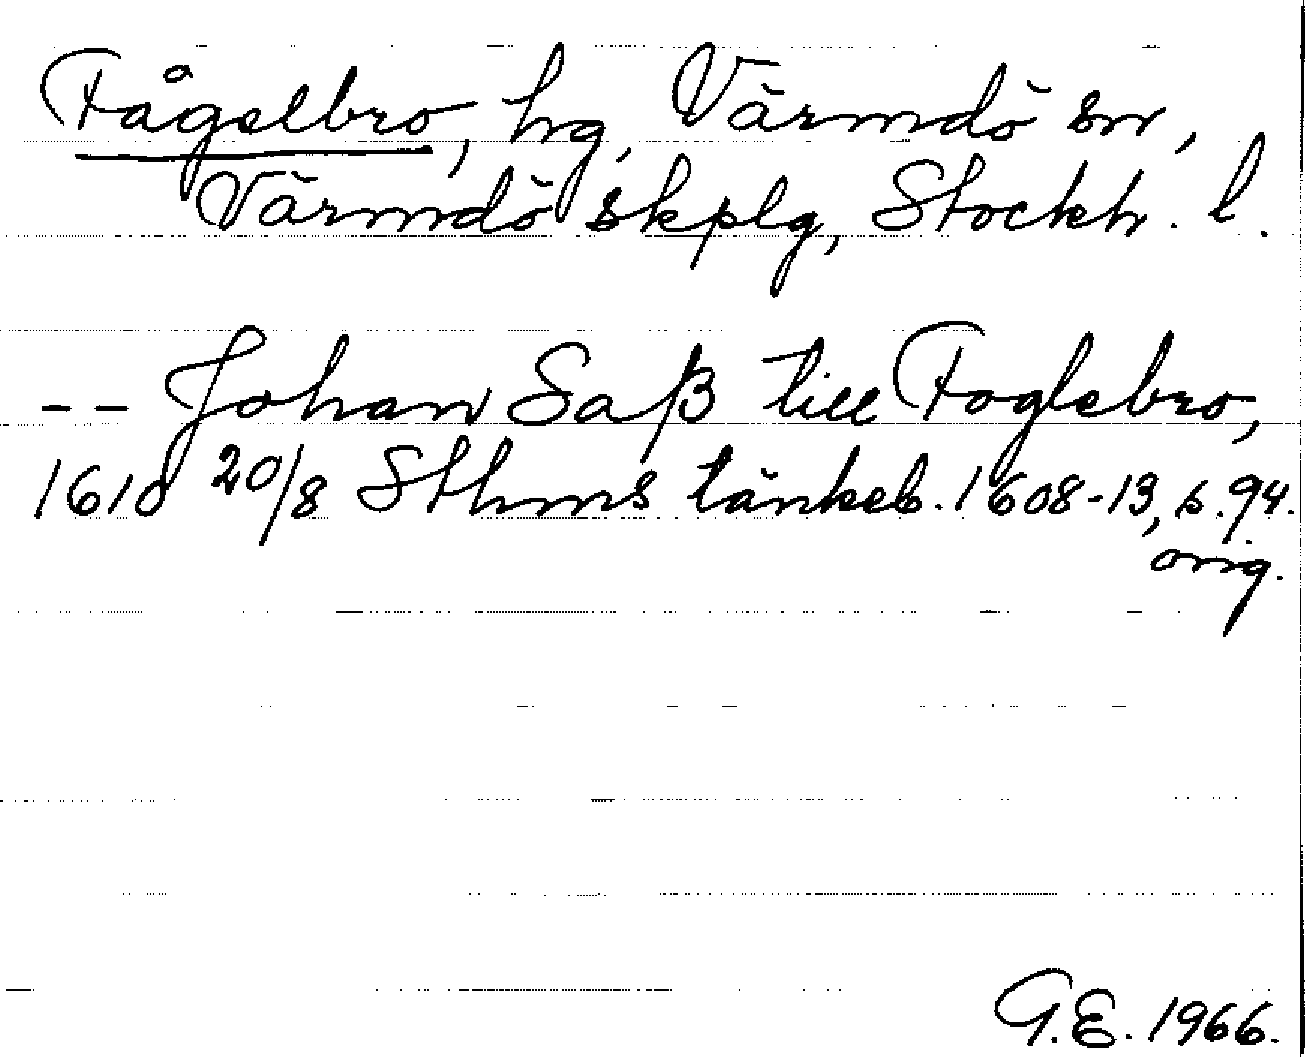 Fågelbro, hg, Värmdö sn,
Värmdö skplg, Stockh. l.
-- Johan Saß till Foglebro,
1610 20/8 Sthms tänkeb. 1608-13, s. 94.
orig.
G.E. 1966.